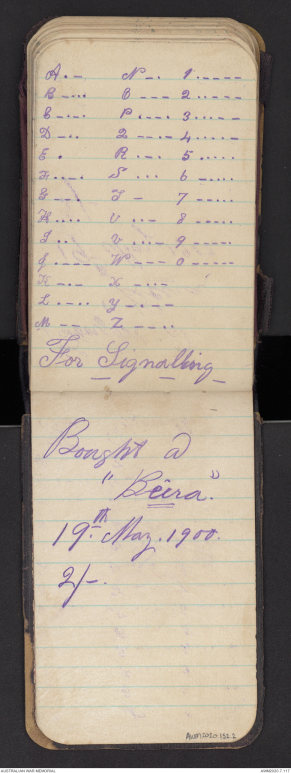 A . – N – . 1 . – – – –
B – . . . O – – – 2 . . – – –
C – . – . P . – – . 3 . . . – –
D – . . Q – – . – 4 . . . . –
E . R . – . 5 . . . . .
F . . – . S . . . 6 – . . . .
G – – . T – 7 – – . . .
H . . . . U . . – 8 – – – . .
I . . V . . . – 9 – – – – .
J . – – – W . – – 0 – – – – –
K – . – X – . . –
L . – . . Y – . – –
M – – Z – – . .
For Signalling
Bought @
"Beira."
19th. May. 1900.
2/-.
AWM2020.7.152.2
AUSTRALIAN WAR MEMORIAL